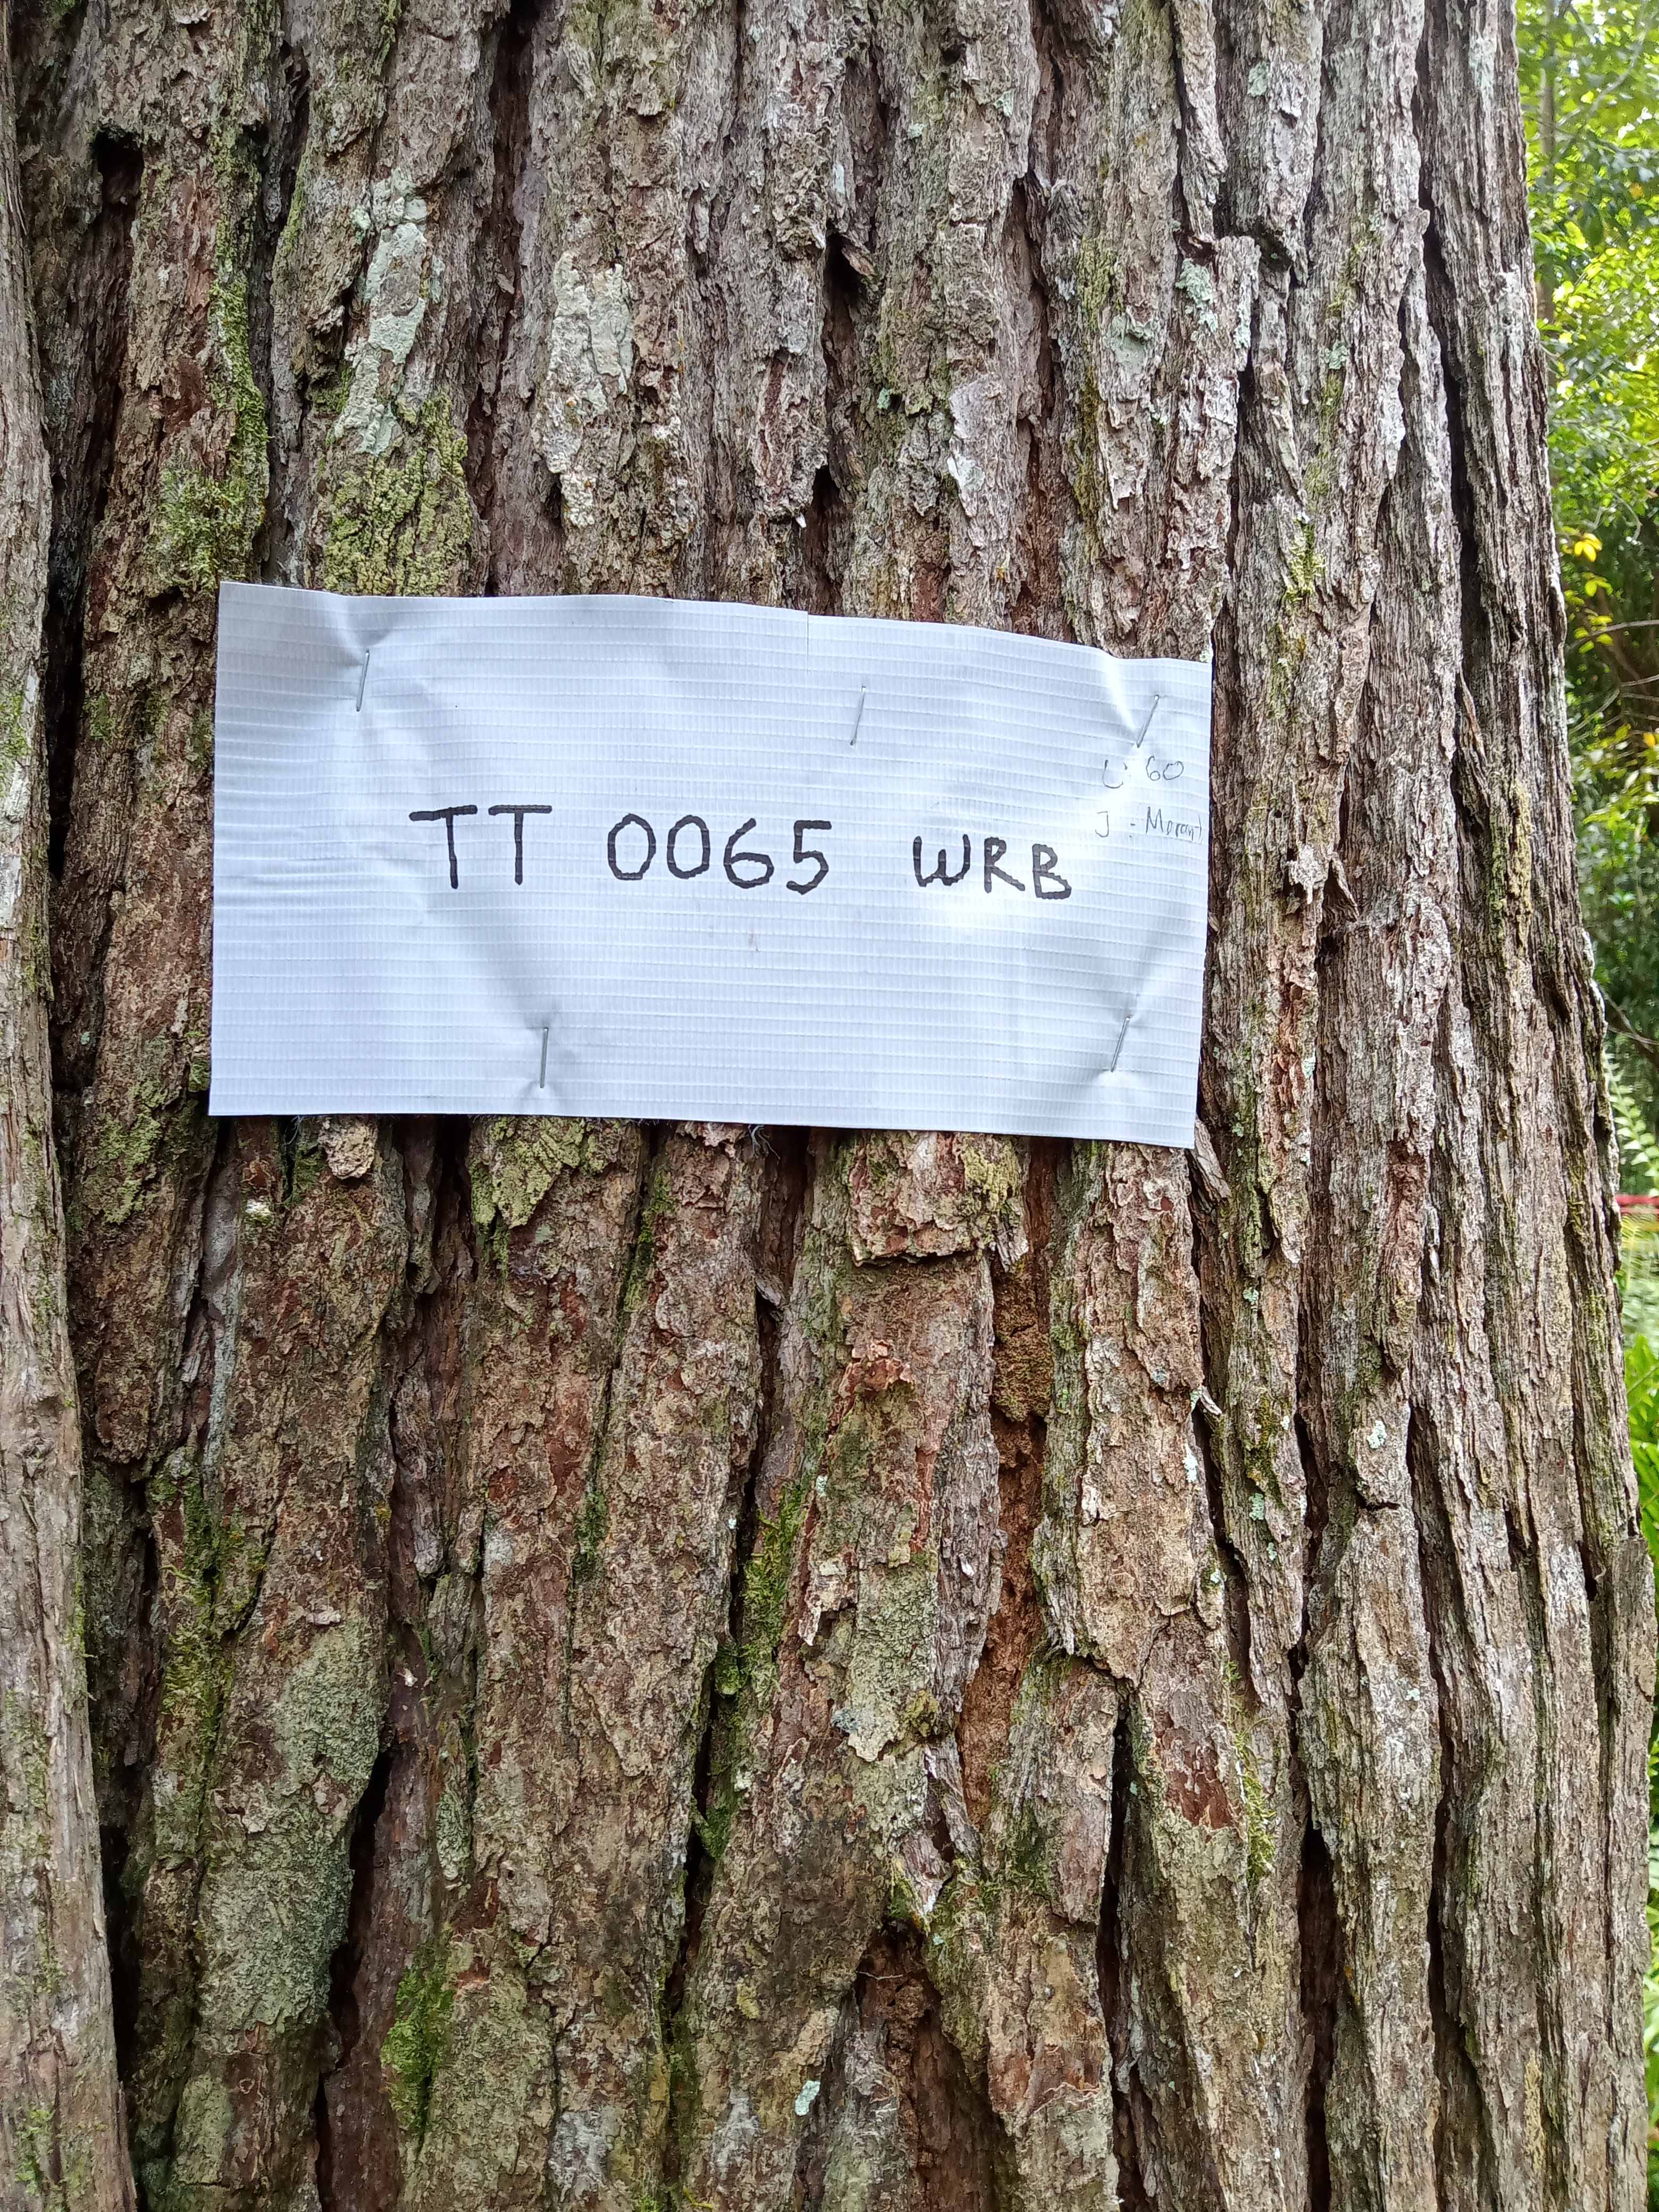 U: 60
J: Meranti
TT 0065 WRB